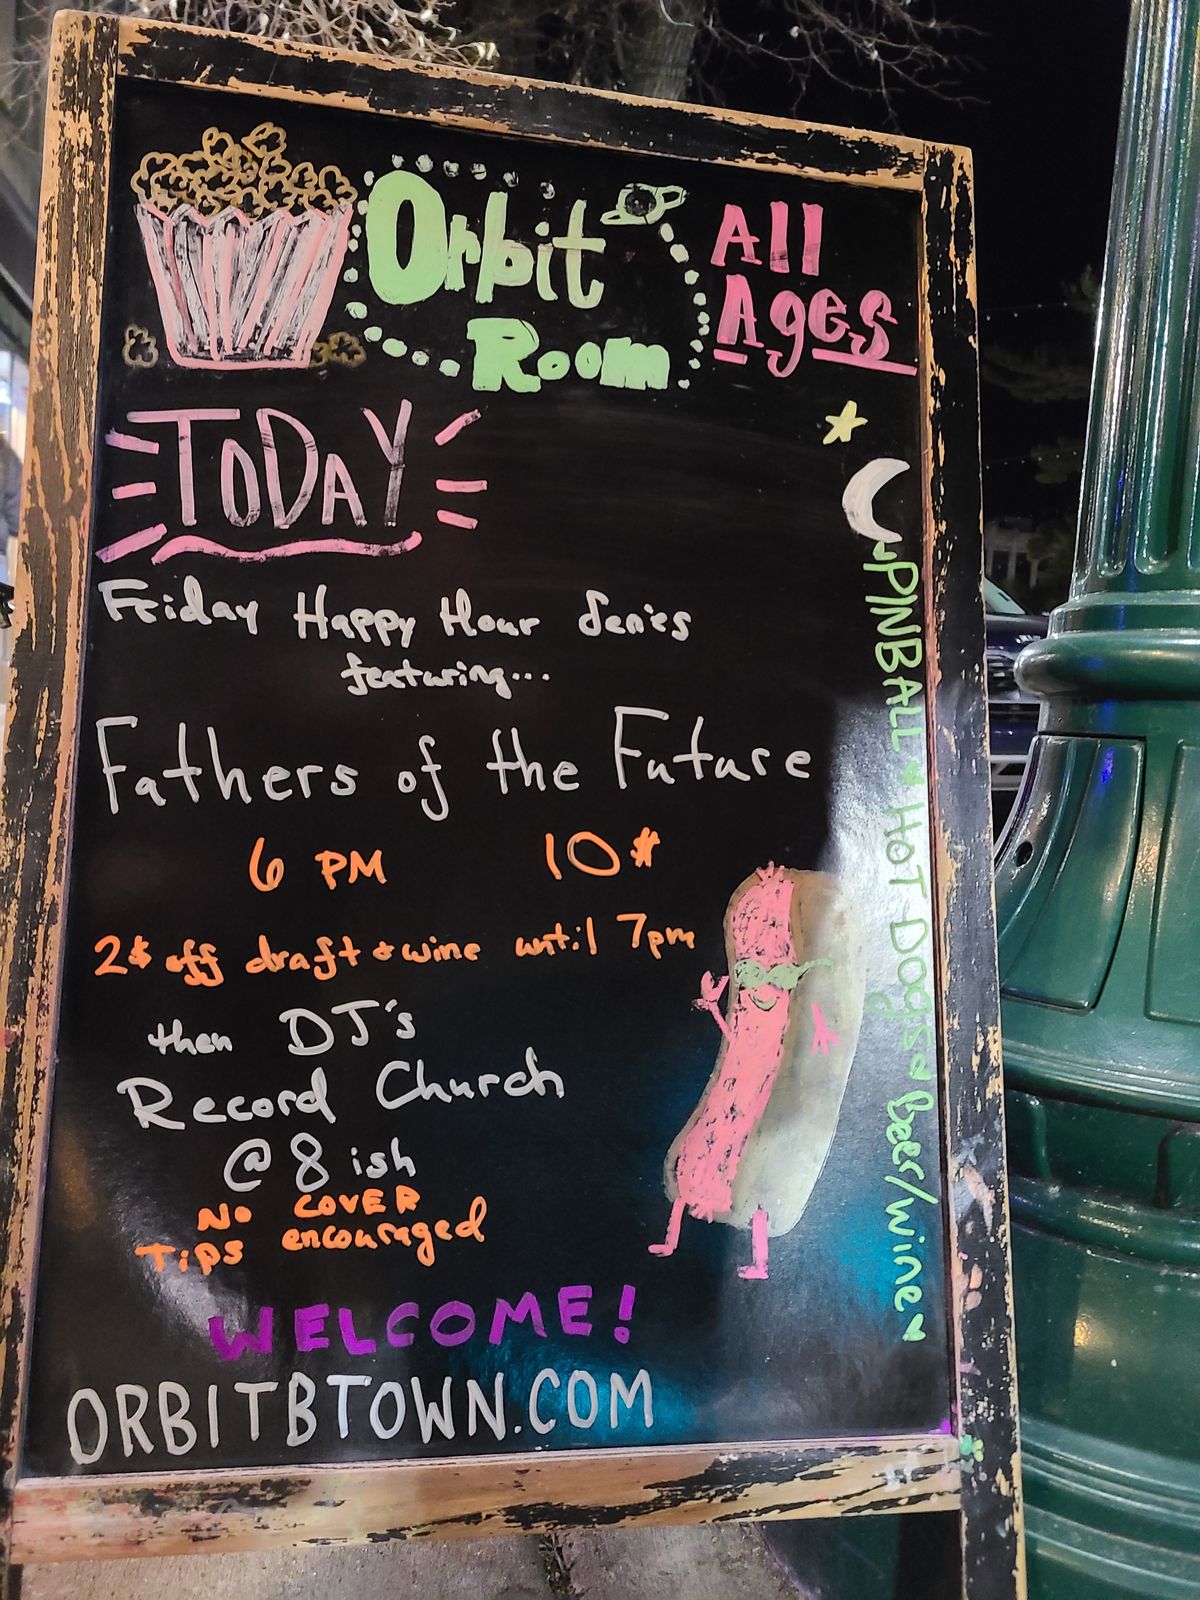 Orbit
Room
All
Ages
TODAY
Friday Happy Hour Series
featuring...
Fathers of the Future
6 PM 10$
2$ off draft + wine until 7pm
then DJ's
Record Church
@ 8 ish
No COVER
Tips encouraged
WELCOME!
ORBITBTOWN.COM
~PINBALL ~ HOT DOgS ~ Beer/wine ♥